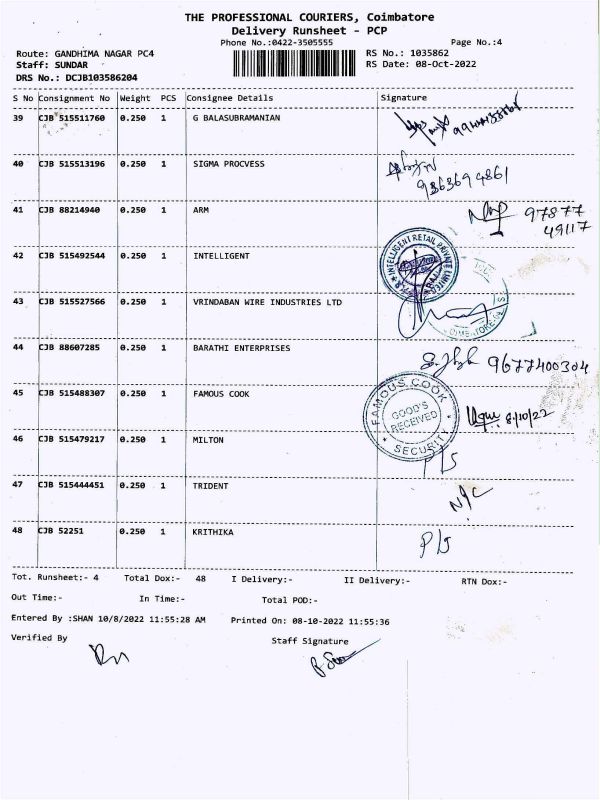 THE PROFESSIONAL COURIERS, Coimbatore
Delivery Runsheet - PCP
Phone No.:0422-3505555
Page No.:4
Route: GANDHIMA NAGAR PC4
RS No.: 1035862
Staff: SUNDAR
RS Date: 08-Oct-2022
DRS No.: DCJB103586204
S No Consignment No Weight PCS Consignee Details Signature
39 CJB 515511760 0.250 1 G BALASUBRAMANIAN
40 CJB 515513196 0.250 1 SIGMA PROCVESS
9363694861
41 CJB 88214940 0.250 1 ARM
97877
49117
42 CJB 515492544 0.250 1 INTELLIGENT
INTELLIGENT RETAIL PRIVATE LIMITED
43 CJB 515527566 0.250 1 VRINDABAN WIRE INDUSTRIES LTD
44 CJB 88607285 0.250 1 BARATHI ENTERPRISES
9677400304
45 CJB 515488307 0.250 1 FAMOUS COOK
FAMOUS COOK
GOOD'S
RECEIVED
SECURITY
8/10/22
46 CJB 515479217 0.250 1 MILTON
P/S
47 CJB 515444451 0.250 1 TRIDENT
N/C
48 CJB 52251 0.250 1 KRITHIKA
P/S
Tot. Runsheet:- 4 Total Dox:- 48 I Delivery:- II Delivery:- RTN Dox:-
Out Time:- In Time:- Total POD:-
Entered By :SHAN 10/8/2022 11:55:28 AM Printed On: 08-10-2022 11:55:36
Verified By Staff Signature